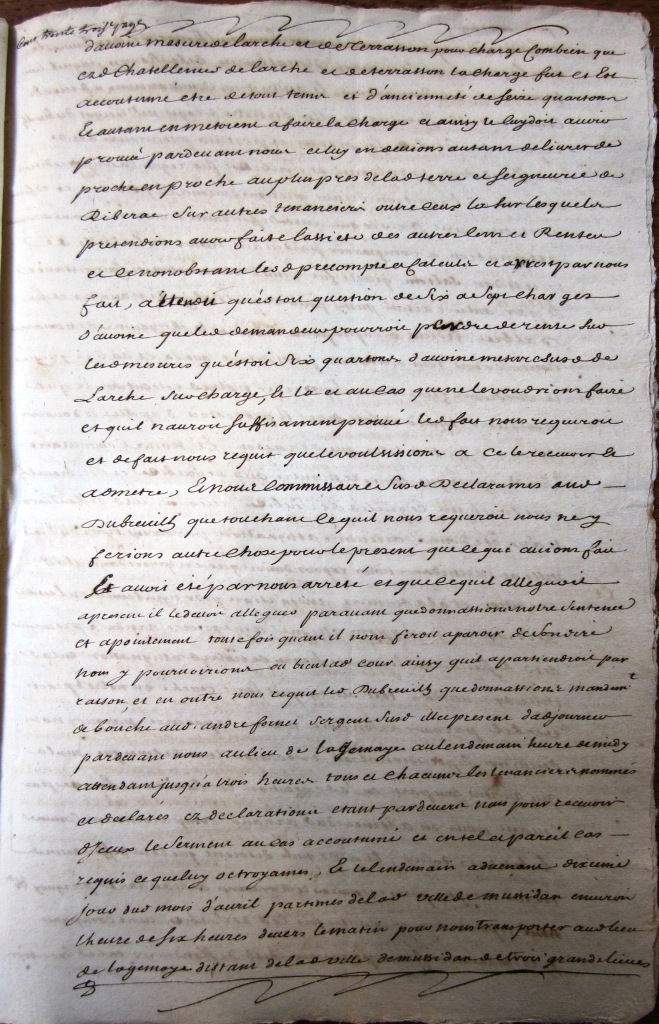 Cent trente trois
d'avoine mesure de larche et de terrasson pour charge Combien que
ez d Chatellenies de larche et de terrasson la charge fut et Est
accoutumé etre de tout tems et d'ancienneté de seize quartons
Et autant en metoient a faire la charge et ainsy le luy doit avoir
prouvé pardevant nous et luy en devions autant de livrer de
proche en proche au plus pres de la d terre et seigneurie de
Riberac sur autres tenanciers outre ceux la sur lesquels
pretendions avoir fait l'assiete des autres Cens et Rentes
et ce nonobstant les d precompte Calculs et arrest par nous
fait, attendu qu'estoit question de six a sept charges
d'avoine que led demandeur pourroit perdre de rente sur
les d mesures qu'estoit six quartons d'avoine mesure susd de
Larche sur charge, et la et au cas que ne le voudrions faire
et qu'il n'auroit suffisament prouvé led fait nous requeroit
et de fait nous requit que le voulsissions a ce le recevoir et
admetre, Et nous Commissaire susd Declarames aud
Dubreuilh que touchant ce quil nous requeroit nous ne y
ferions autre chose pour le present que ce qui avions fait
et avoit été par nous arreté et que ce quil alleguoit
apresent il le devoit alleguer paravant que donnassions notre sentence
et apointement toutefois quant il nous feroit aparoir de son dire
nous y pourvoirions ou bien lad cour ainsy quil apartiendroit par
raison, et en outre nous requit led Dubreuilh que donnassions mandemt
de bouche aud. andre fornel sergent susd illec present d'adjourner
pardevant nous au lieu de lagemaye au lendemain heure de midy
attendant jusqu'a trois heures tous et chacuns les tenanciers nommés
et declarés ez declarations etant pardevers nous pour recevoir
d'iceux le serment au cas accoutumé et en tel et pareil cas
requis ce que luy octroyames, Et le lendemain advenant dixieme
jour dud mois d'avril partimes de lad ville de mussidan environ
l'heure de six heures devers le matin pour nous transporter aud lieu
de lagemaye distant de lad ville de mussidan de trois grandes lieues